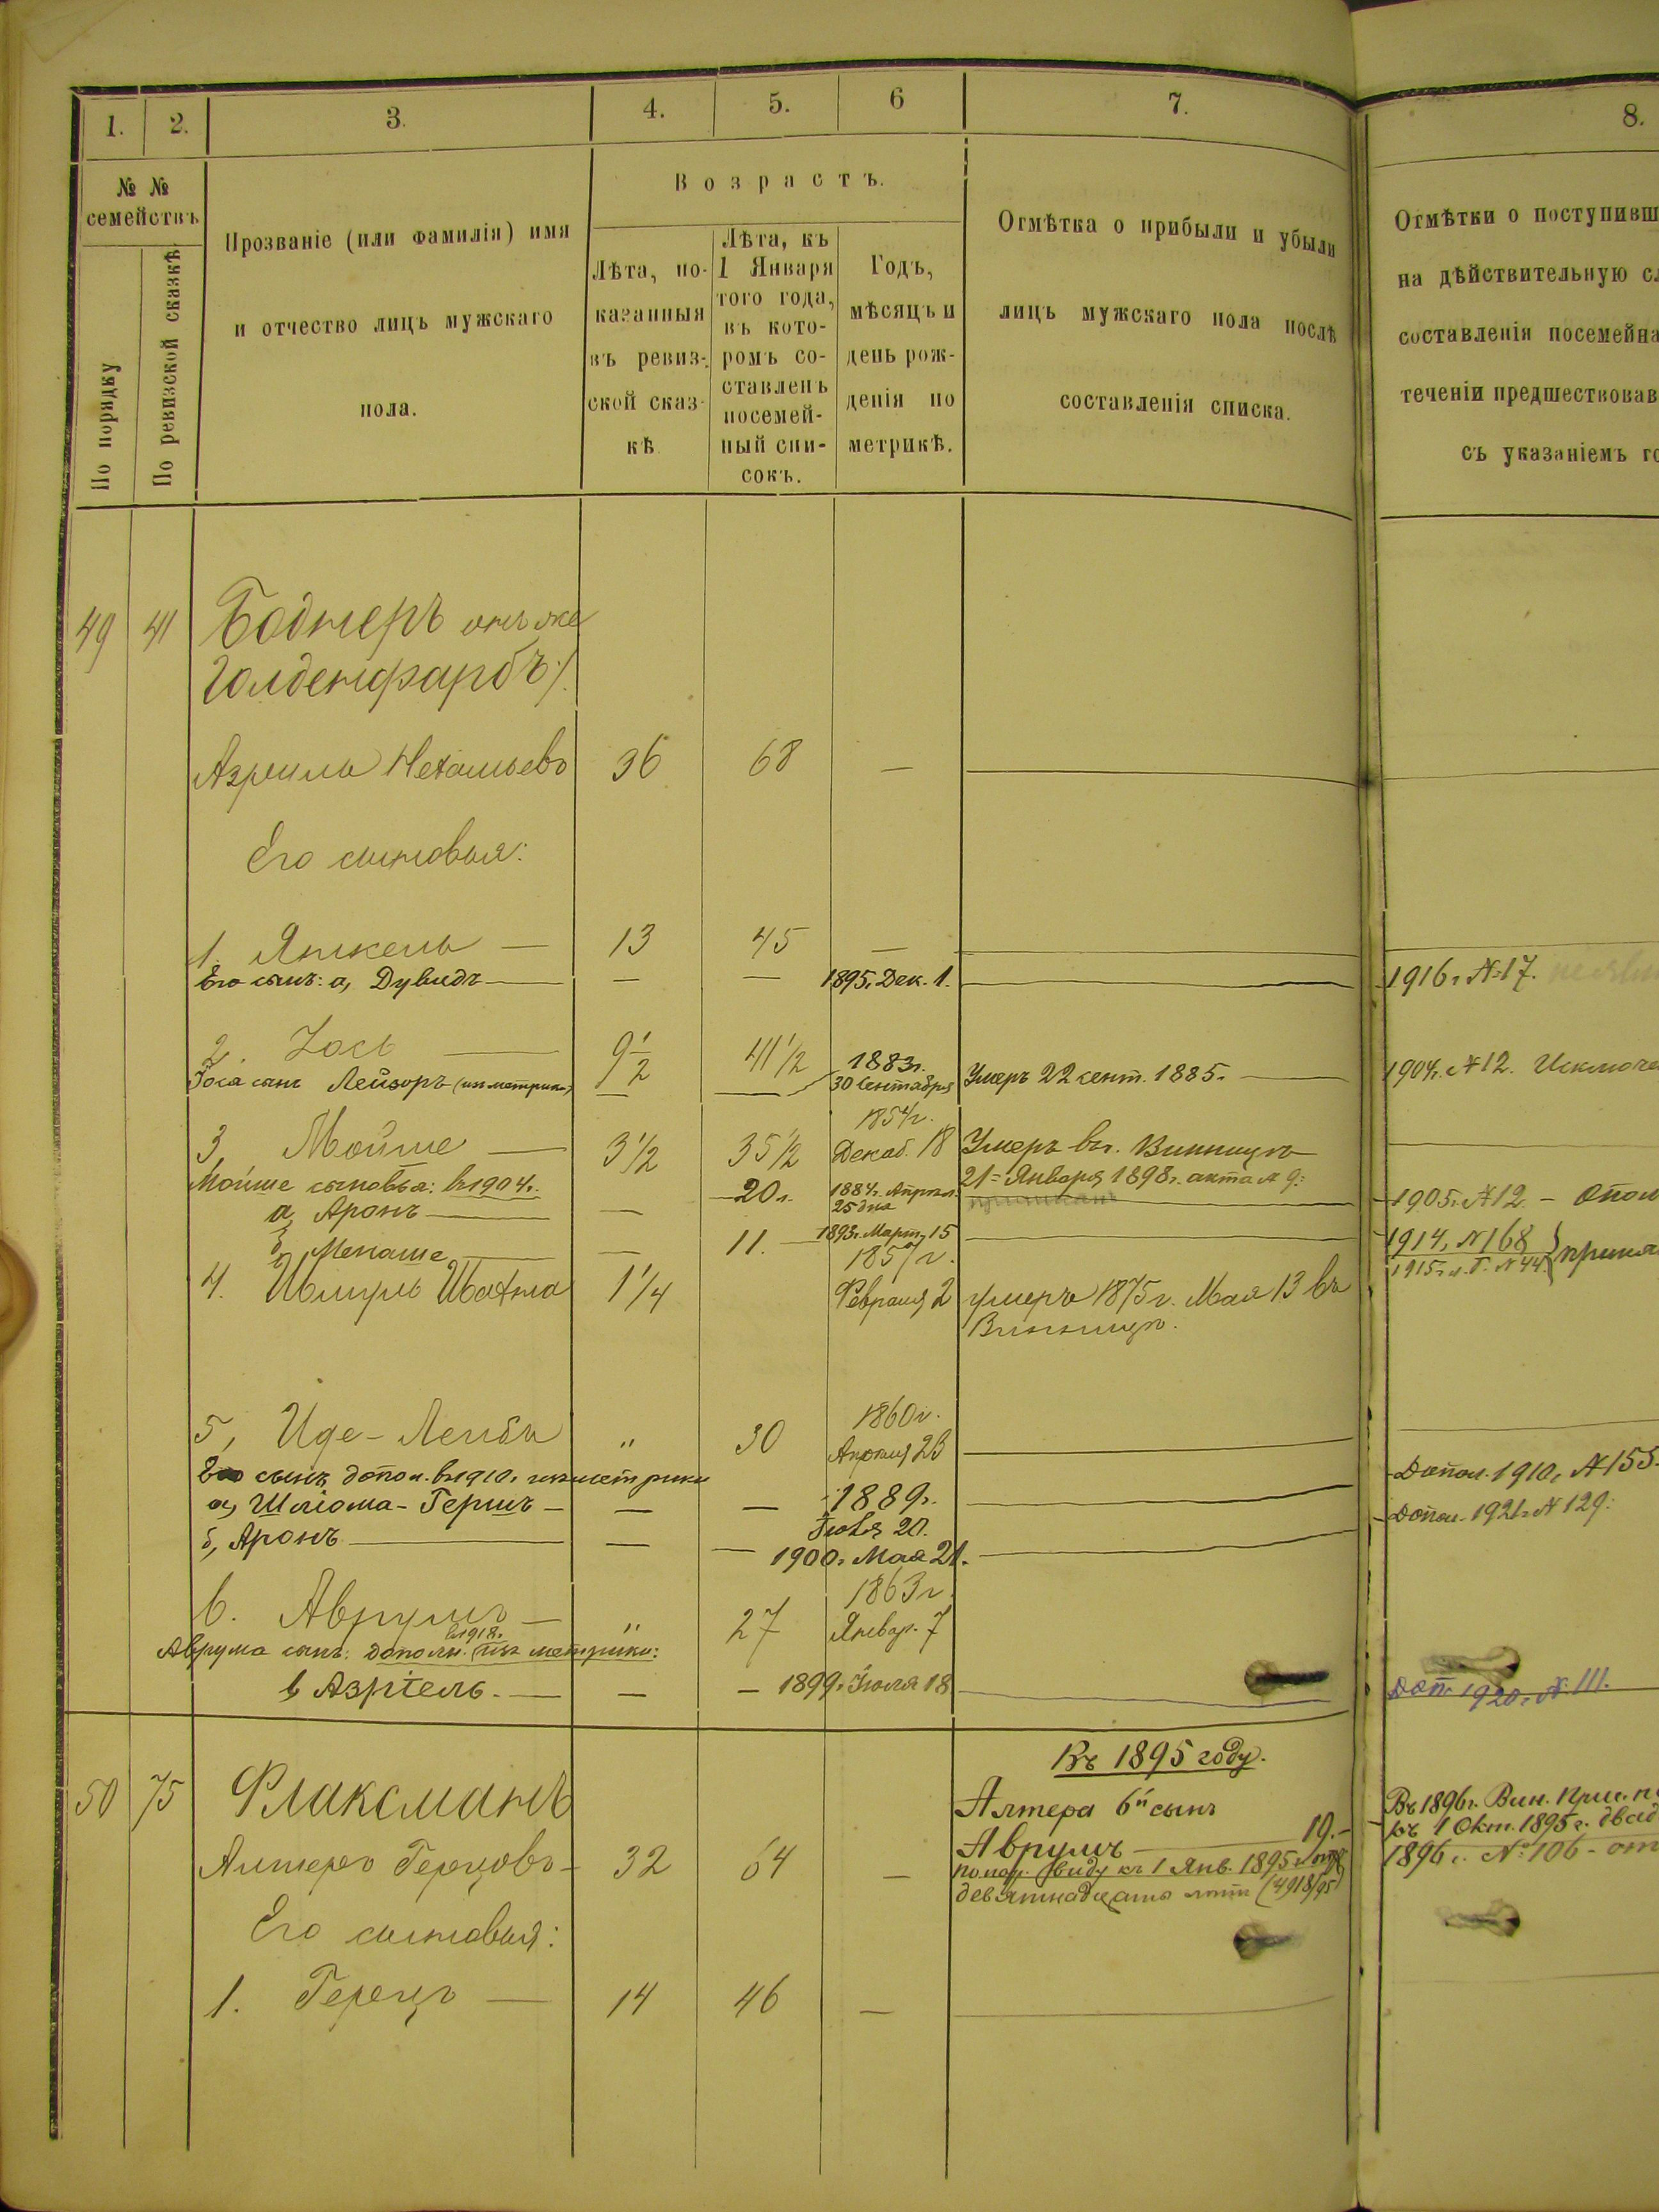 1. 2. 3. 4. 5. 6 7. 8.
№ №
семействъ
По порядку
По ревизской сказкѣ
Прозваніе (или фамилія) имя
и отчество лицъ мужскаго
пола.
Возрастъ.
Лѣта, по-
казанныя
въ ревиз-
ской сказ-
кѣ.
Лѣта, къ
1 Января
того года,
въ кото-
ромъ со-
ставленъ
посемей-
ный спи-
сокъ.
Годъ,
мѣсяцъ и
день рож-
денія по
метрикѣ.
Отмѣтка о прибыли и убыли
лицъ мужскаго пола послѣ
составленія списка.
Отмѣтки о поступивш
на дѣйствительную сл
составленія посемейна
теченіи предшествовав
съ указаніемъ го
49 41 Боднеръ онъ же
Голденфарбъ /.
Азриль Нехамьевъ 36 68 —
Его сыновья:
1. Янкель — 13 45 —
Его сынъ: а, Дувидъ — — — 1895г. Дек. 1. 1916г. № 17.
2. Іось — 9 1/2 41 1/2 1883г.
Іося сынъ Лейзоръ (из метрики) — — 30 Сентября Умеръ 22 сент. 1885г. — 1904г. № 12. Исключе
3. Мойше — 3 1/2 35 1/2 1854г. Декаб. 18 Умеръ въ г. Винницѣ
21 = Января 1898г. акта № 9:
Мойше сыновья: въ 1904г.
а, Аронъ — — 20г. 1884г. Апрѣл. 25 дня 1905г. № 12 – Опол
б, Менаше — — 11. 1893г. Март. 15 1914, № 168
1915г. № 44. приня
4. 1 1/4 1857г. Февраля 2 умеръ 1875г. Мая 13 въ
Винницѣ.
5, Иде-Лейбъ „ 30 1860г.
Апрѣля 23
Его сынъ допол. въ 1910г. из метрики Допол. 1910г. № 155.
а, Шлiома-Гершъ — — — 1889г.
Іюля 20. Допол. 1921г. № 129:
б, Аронъ — — — 1900г. Мая 21.
6. Аврумъ — „ 27 1863г.
Январ. 7
Аврума сынъ: дополн. въ 1918г. из метрики:
Азріель. — — — 1899г. Іюля 18 Доп. 1920г. № 111.
50 75 Флаксманъ
Алтеръ Герцовъ – 32 64 —
Въ 1895 году.
Алтера 6й сынъ
Аврумъ — 19. –
по нар. виду къ 1 Янв. 1895г.
девятнадцать лѣтъ (4918/95)
Въ 1896г. Вин. При. п
къ 1 Окт. 1895г. двад
1896г. № 106 – от
Его сыновья:
1. Герецъ — 14 46 —